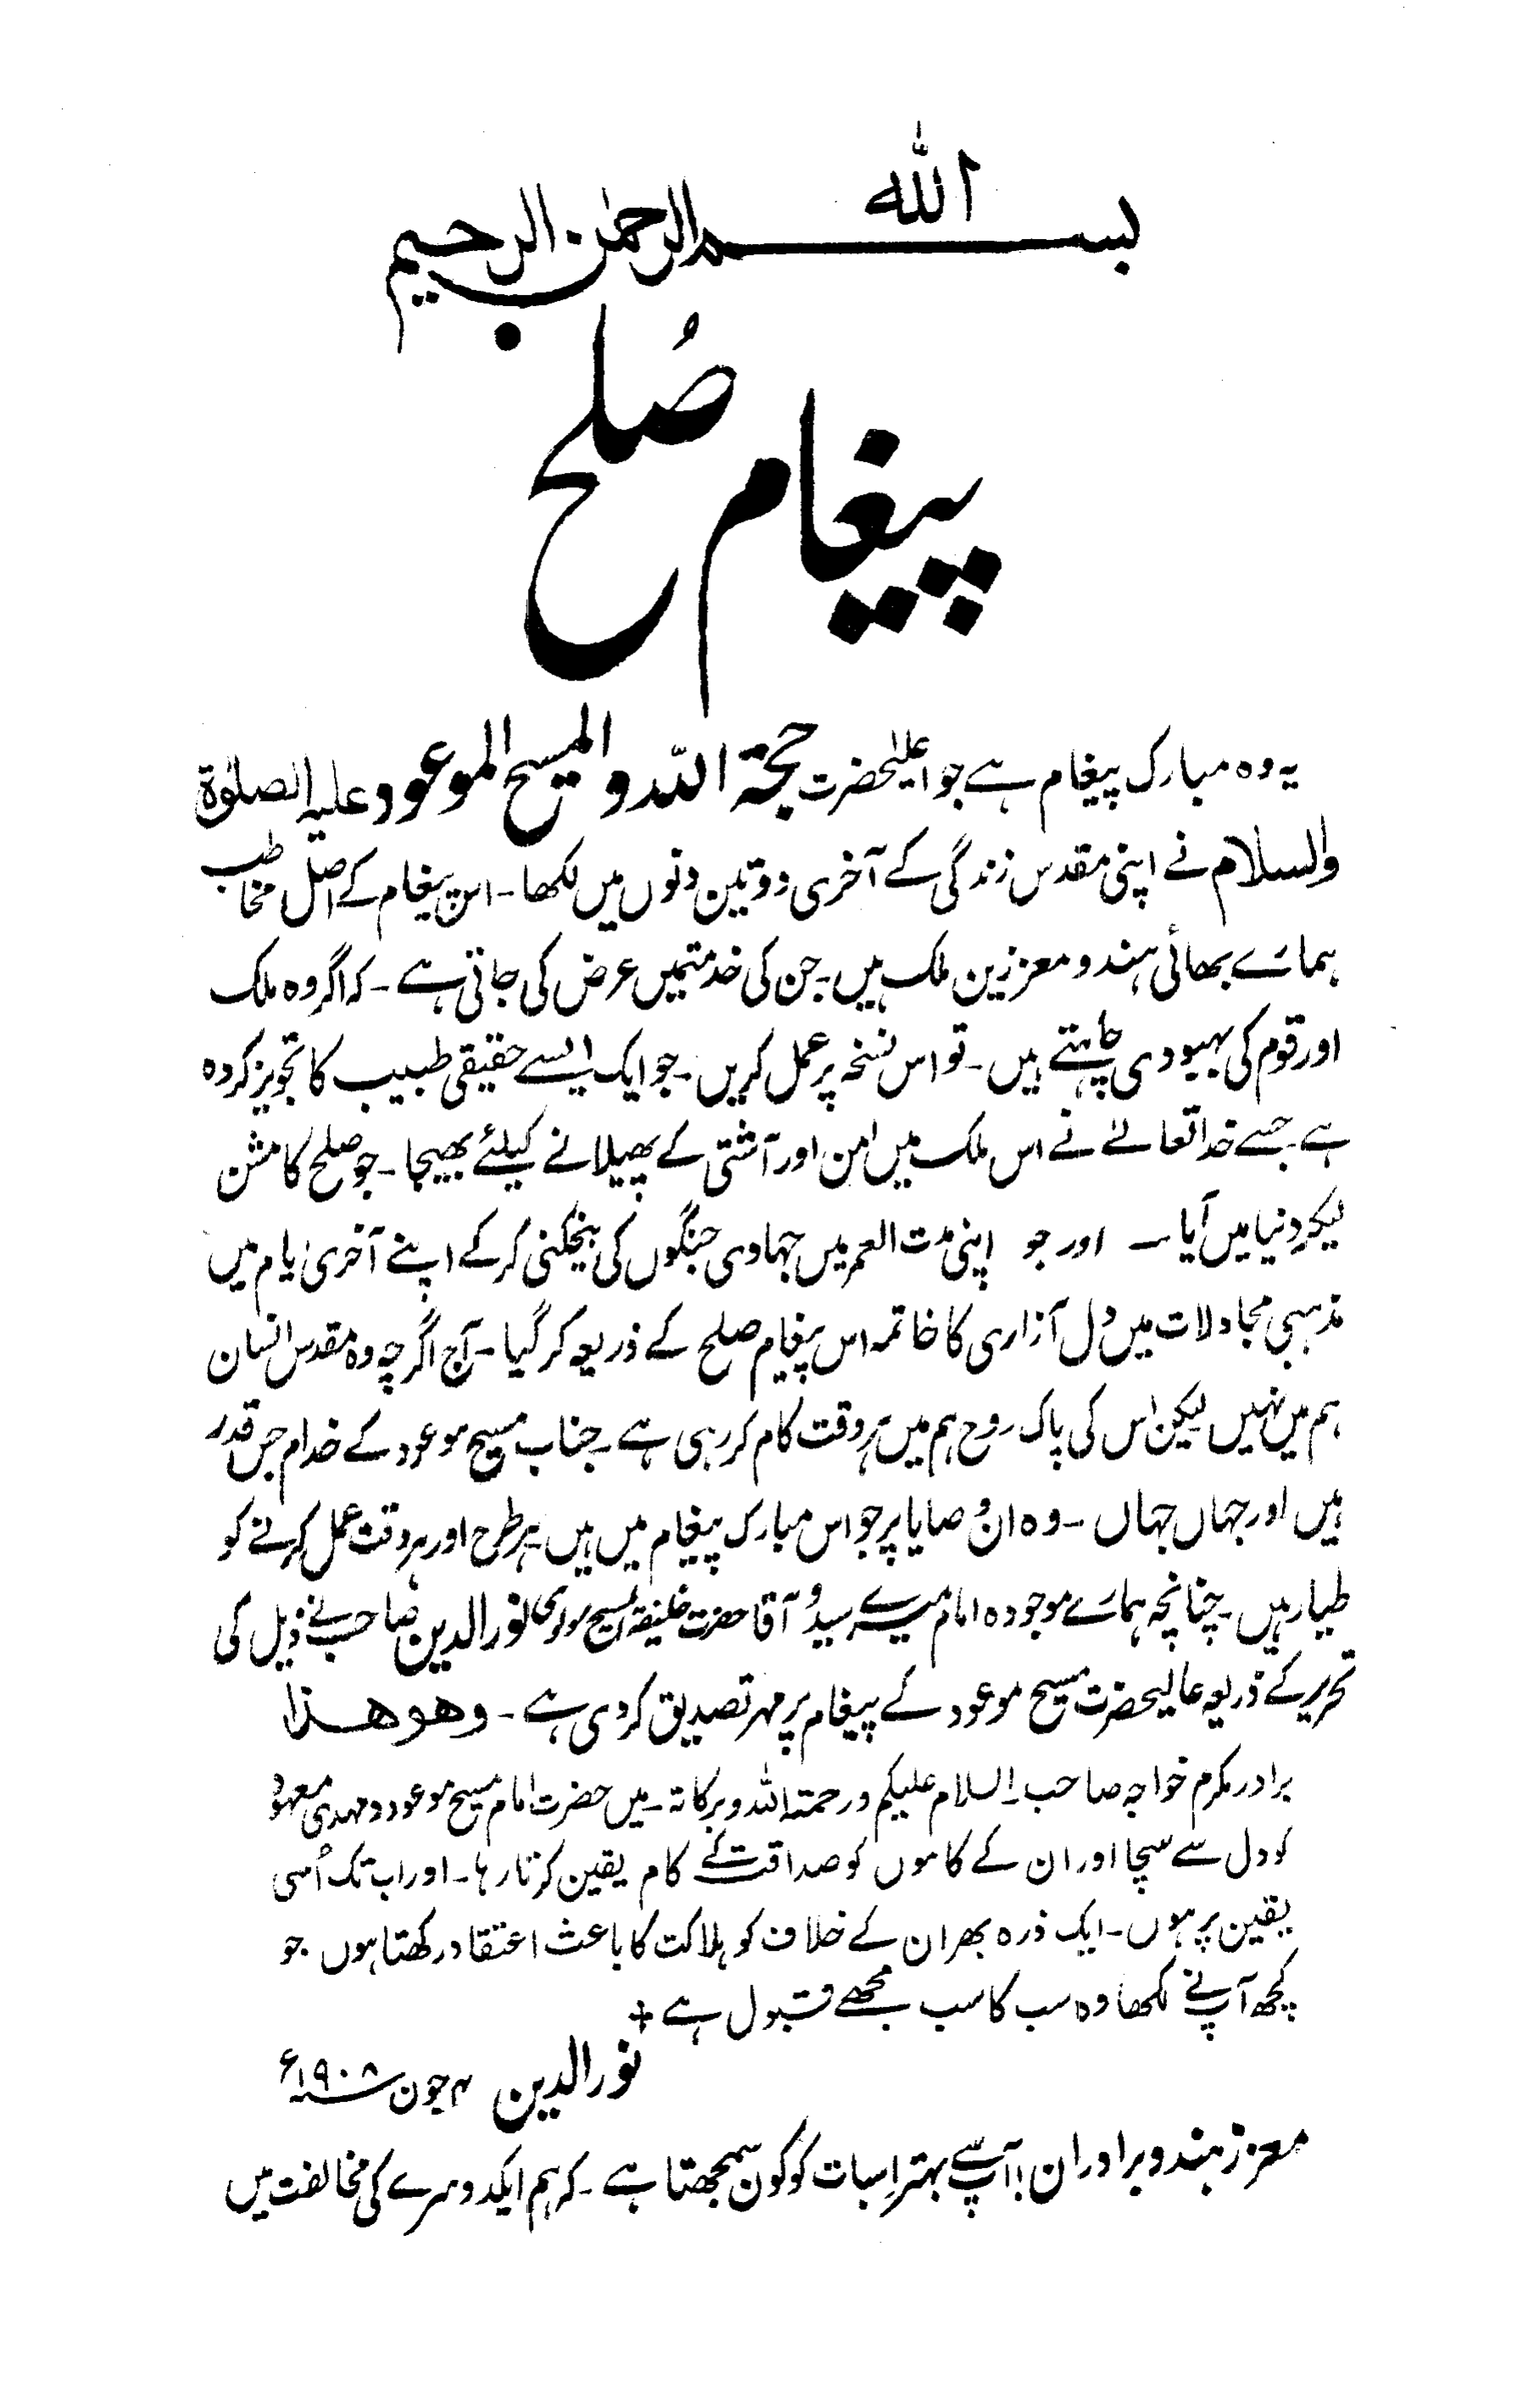 بسم الله الرحمٰن الرحیم
پیغام صُلح
یہ وہ مبارک پیغام ہے جو اعلیٰحضرت حجۃ اللہ والمسیح الموعود علیہ الصلوٰۃ
والسلام نے اپنی مقدس زندگی کے آخری دو تین دنوں میں لکھا۔ اس پیغام کے اصل مخاطب
ہمارے بھائی ہندو معززین ملک ہیں۔ جن کی خدمتمیں عرض کی جاتی ہے۔ کہ اگر وہ ملک
اور قوم کی بہبودی چاہتے ہیں۔ تو اس نسخہ پر عمل کریں۔ جو ایک ایسے حقیقی طبیب کا تجویز کردہ
ہے۔ جسے خدا تعالےٰ نے اس ملک میں امن اور آشتی کے پھیلانے کیلئے بھیجا۔ جو صلح کا مشن
لیکر دنیا میں آیا۔ اور جو اپنی مدت العمر میں جہادی جنگوں کی بیخکنی کرکے اپنے آخری ایام میں
مذہبی مجادلات میں دل آزاری کا خاتمہ اس پیغام صلح کے ذریعہ کر گیا۔ آج اگرچہ وہ مقدس انسان
ہم میں نہیں لیکن اس کی پاک روح ہم میں ہر وقت کام کر رہی ہے۔ جناب مسیح موعود کے خدام جس قدر
ہیں اور جہاں جہاں۔ وہ ان وصایا پر جو اس مبارک پیغام میں ہیں۔ ہر طرح اور ہر وقت عمل کرنے کو
طیار ہیں۔ چنانچہ ہمارے موجودہ امام میرے سید و آقا حضرت خلیفۃ المسیح مولوی نورالدین صاحب نے ذیل کی
تحریر کے ذریعہ عالیحضرت مسیح موعود کے پیغام پر مہر تصدیق کر دی ہے۔ وھو ھذا
برادر مکرم خواجہ صاحب۔ السلام علیکم ورحمتہ اللہ وبرکاتہ۔ میں حضرت امام مسیح موعود و مہدی معہود
کو دل سے سچا اور ان کے کاموں کو صداقت کے کام یقین کرتا رہا۔ اور اب تک اُسی
یقین پر ہوں۔ ایک ذرہ بھر ان کے خلاف کو ہلاکت کا باعث اعتقاد رکھتا ہوں جو
کچھ آپ نے لکھا وہ سب کا سب مجھے قبول ہے +
نورالدین ۴ جون ۱۹۰۸ء
معزز ہندو برادران! آپ سے بہتر اسبات کو کون سمجھتا ہے۔ کہ ہم ایکدوسرے کی مخالفت میں